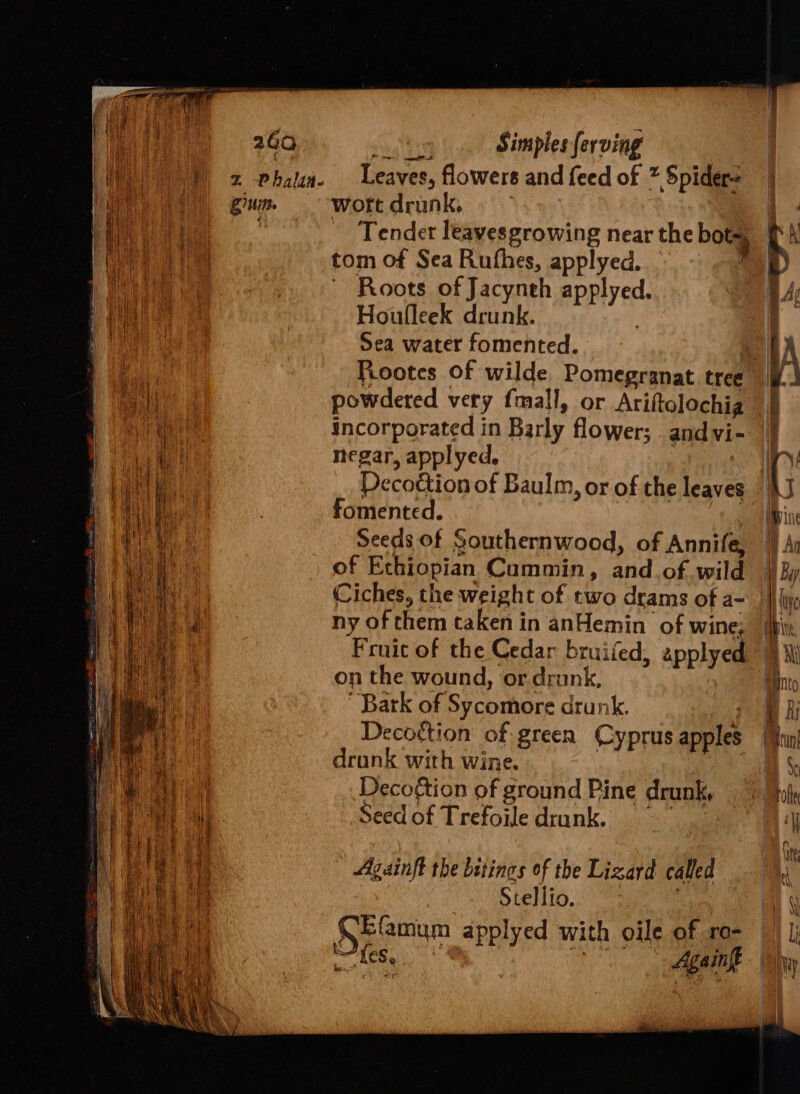 260 Simples ſerving
z Phalan- Leaves, flowers and ſeed of z Spider-
gium. wort drunk.
Tender leavesgrowing near the bot-
tom of Sea Ruſhes, applyed.
Roots of Jacynth applyed.
Houſleek drunk.
Sea water fomented.
Rootes of wilde Pomegranat tree
powdered very ſmall, or Ariſtolochia
incorporated in Barly flower; and vi-
negar, applyed.
Decoction of Baulm, or of the leaves
fomented.
Seeds of Southernwood, of Anniſe,
of Ethiopian Cummin, and of wild
Ciches, the weight of two drams of a-
ny of them taken in anHemin of wine;
Fruit of the Cedar bruiſed, applyed
on the wound, or drunk.
Bark of Sycomore drunk.
Decoction of green Cyprus apples
drunk with wine.
Decoction of ground Pine drunk.
Seed of Trefoile drunk.
Againſt the bitings of the Lizard called
Stellio.
SEſamum applyed with oile of ro-
ſes.
Againſt